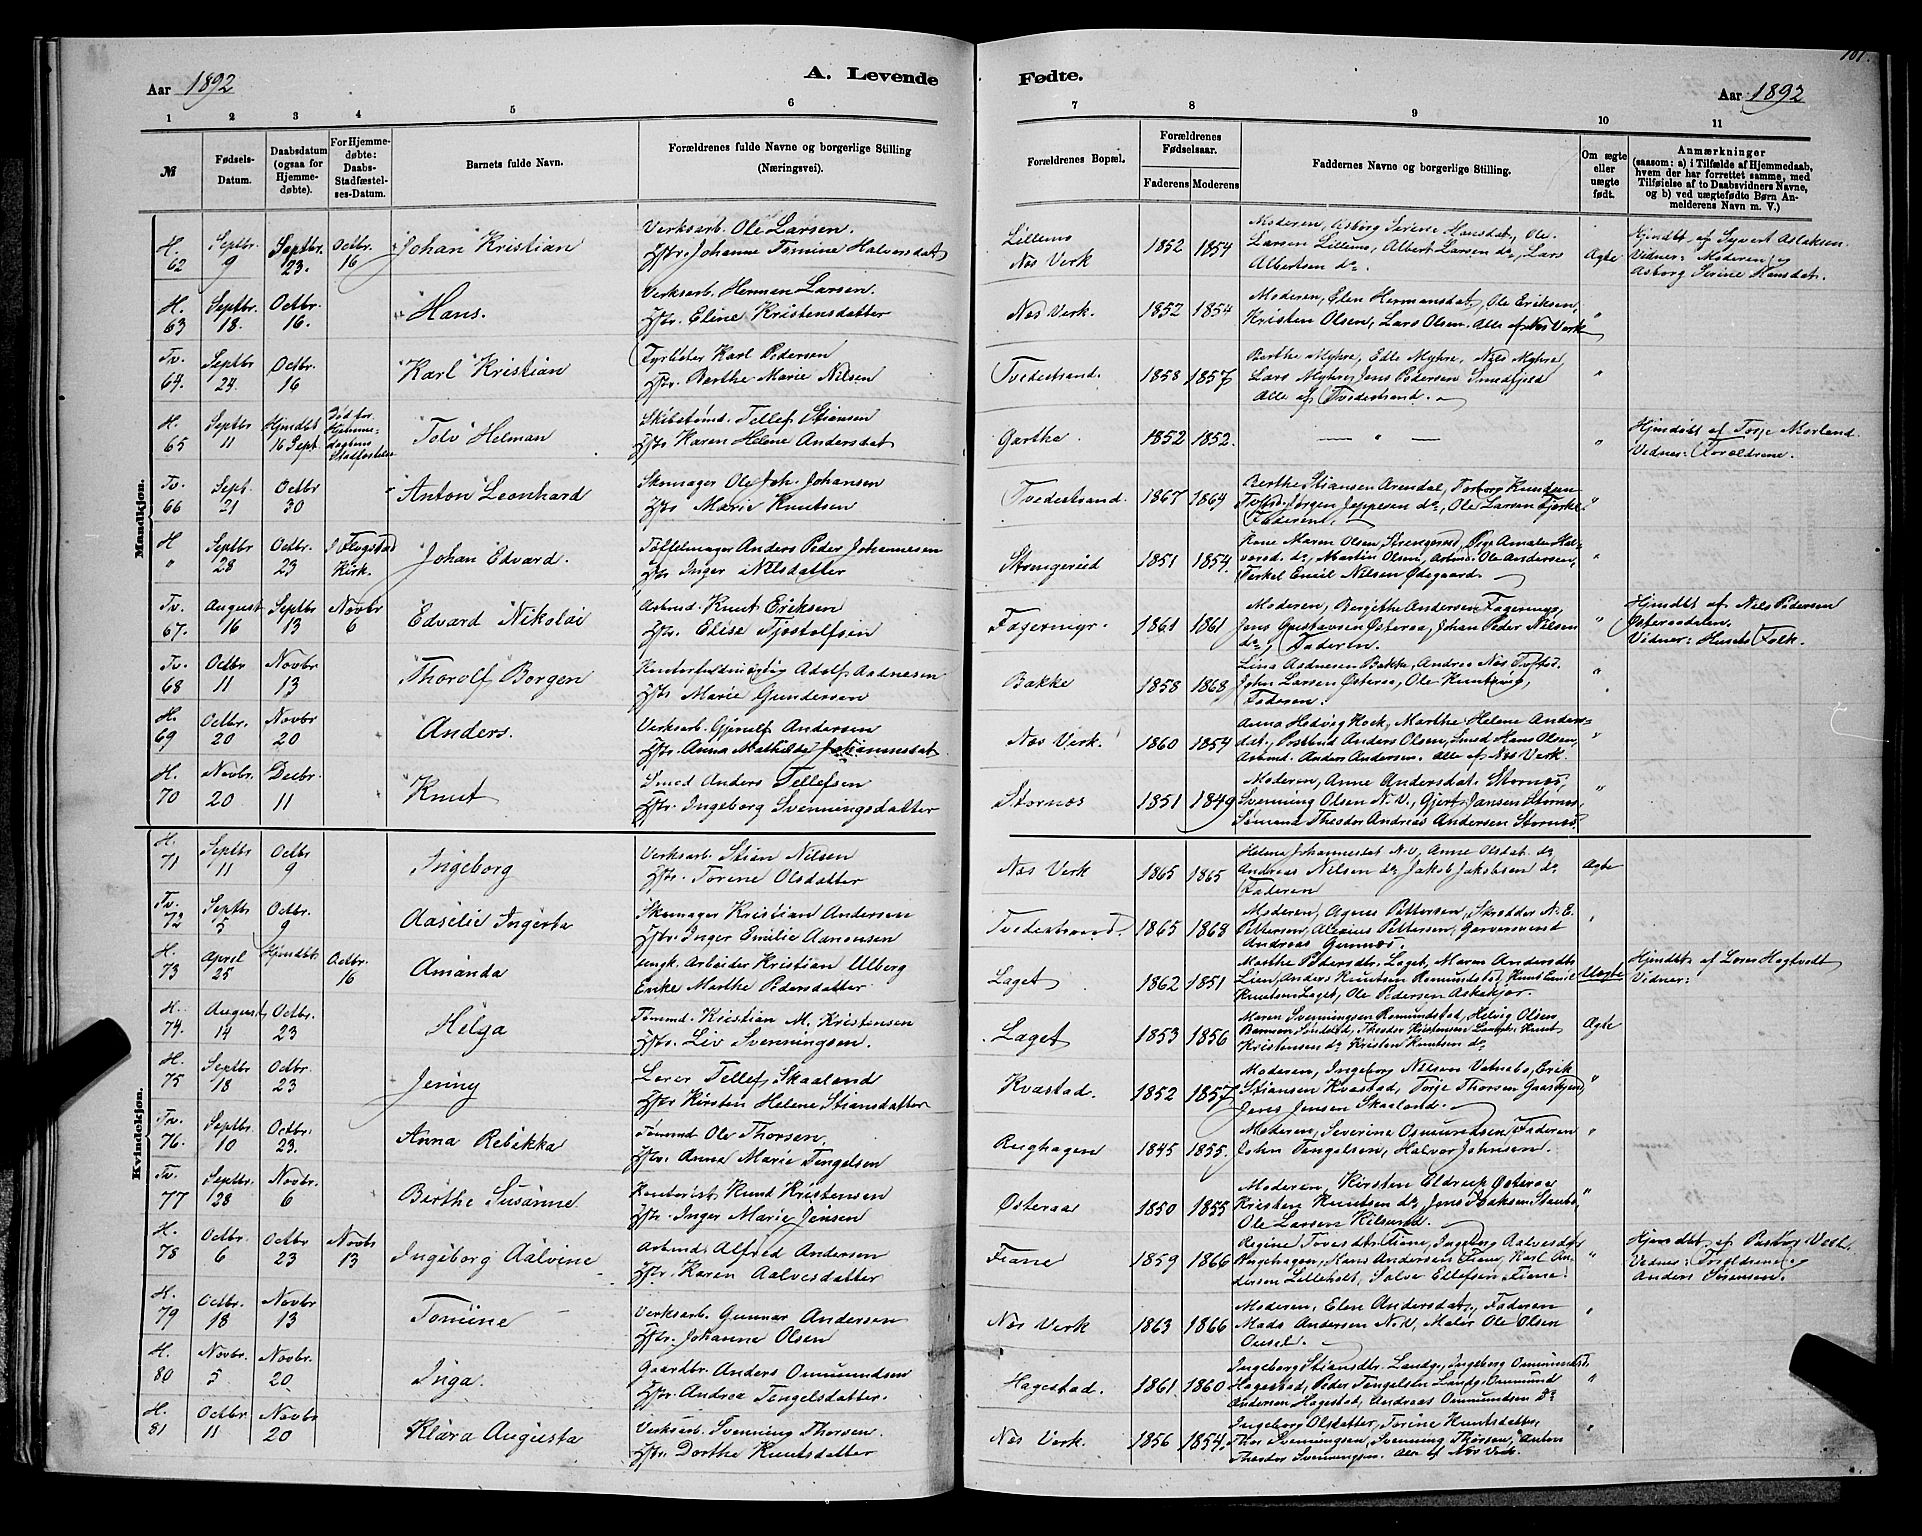 101.
Aar 1892
A. Levende Fødte.
Aar 1892
1 2 3 4 5 6 7 8 9 10 11
№
Fødsels-Datum.
Daabsdatum (ogsaa for Hjemmedøbte).
For Hjemmedøbte: Daabs-Stadfæstelses-Datum.
Barnets fulde Navn.
Forældrenes fulde Navne og borgerlige Stilling (Næringsvei).
Forældrenes Bopæl.
Forældrenes Fødselsaar.
Faderens Moderens
Faddernes Navne og borgerlige Stilling.
Om ægte eller uægte født.
Anmærkninger (saasom: a) i Tilfælde af Hjemmedaab, hvem der har forrettet samme, med Tilføielse af to Daabsvidners Navne, og b) ved uægtefødte Børn Anmelderens Navn m. V.)
Mandkjøn.
H. 62 Septbr. 9 Septbr. 23. Octbr. 16 Johan Kristian
Verksarb. Ole Larsen.
Hstr. Johanne Tomine Halvorsdat
Lillems Næs Verk 1852 1854
Moderen, Asborg Serine Hansdat, Ole
Larsen Lillems, Albert Larsen do, Lars
Albertsen do.
Ægte
Hjmdbt af Syvert Aslaksen
Vidner: Moderen og
Asborg Serine Hansdat.
H. 63 Septbr. 18. Octbr. 16. Hans.
Verksarb. Herman Larsen.
Hstr. Eline Kristensdatter
Næs Verk. 1852 1854
Moderen, Elen Hermansdat, Ole Eriksen,
Kristen Olsen, Lars Olsen. Alle af Næs Verk
"
Tv. 64. Septbr 24. Octbr 16 Karl Kristian
Fyrbøter Karl Pedersen
Hstr. Berthe Marie Nilsen
Tvedestrand. 1858 1857
Berthe Myhre, Edle Myhre, Nils Myhre,
Lars Myhre, Jens Pedersen Smedfjeld
Alle af Tvedestrand.
"
H 65 Septbr 11 Hjmdbt 16 Sept. Tolv Helman
Skibstømd. Tellef Stiansen
Hstr Karen Helene Andersdat
Garthe. 1852 1852.
— " —
"
Hjmdøbt af Torje Morland.
Vidner: Forældrene.
Tv. 66 Sept. 21 Octbr 30 Anton Leonhard
Skomager Ole Joh. Johansen
Hstr Marie Knutsen
Tvedestrand. 1867 1864
Berthe Stiansen Arendal, Torborg Knudsen
Jørgen Jeppesen do, Ole Larsen
Faderen.
"
H " Septbr 28 Octbr. 23 I Flogstad Kirk. Johan Edvard.
Tøffelmager Anders Peder Johannesen
Hstr Inger Nilsdatter
Strengereid 1851 1854.
Kone Maren Olsen, Strengereid,
Martin Olsen, Arbmd. Ole Andersen,
Terkel Emil Nilsen Ødegaard
"
Tv. 67. August 16 Septbr 13 Novbr 6 Edvard Nikolai
Arbmd Knut Eriksen
Hstr. Elise Tjostolfsen
Fagermyr. 1861 1861
Moderen, Bergithe Andersen Fagermyr,
Jens Gustavsen Østeraa, Johan Peder Nilsen
do, Faderen.
"
Hjmdbt af Nils Pedersen
Østeraadalen.
Vidner: Husets Folk.
Tv. 68 Octbr 11 Novbr 13 Thorolf Borgen
Kontorfuldmægtig Adolf Aadnesen
Hstr Marie Gundersen
Bakke 1858 1868
Lina Aadnesen Bakke, Andrea Næs
John Larsen Østeraa, Ole Knutsen,
Faderen.
"
H. 69 Octbr. 20 Novbr 20 Anders.
Verksarb. Gjerulf Andersen
Hstr. Anna Mathilde Johannesdat
Næs Verk. 1860 1854
Anna Hedvig Hock, Marthe Helene Anders-
dat, Anders Olsen, Smed Hans Olsen,
Arbmd. Anders Andersen. Alle af Næs Verk.
"
H. 70 Novbr. 20 Decbr. 11 Knut
Smed Anders Tellefsen
Hstr. Ingeborg Svenningsdatter
Stornæs 1851 1849
Moderen, Anne Andersdat Stornæs,
Svenning Olsen N.V., Gjert Jansen Stornæs,
Sømand Theodor Andreas Andersen Stornæs.
"
Kvindekjøn.
H. 71 Septbr 11 Octbr 9 Ingeborg
Verksarb. Stian Nilsen
Hstr. Torine Olsdatter
Næs Verk 1865 1865
Helene Johannesdat N.V, Anne Olsdat do
Andreas Nilsen do, Jakob Jakobsen do
Faderen
Ægte
Tv. 72 Septbr 5 Octbr. 9 Aaselie Ingerta
Skomager Kristian Andersen
Hstr. Inger Emilie Aanonsen
Tvedestrand. 1865 1868
Moderen, Agnes Pettersen, Skrædder N. E.
Pettersen, Alexius Pettersen, Garversvend
Andreas Gunnæs.
"
H. 73 April 25 Hjmdbt. Octbr. 16 Amanda
ungk. Arbeider Kristian Ulberg
Enke Marthe Pedersdatter
Laget 1862 1851
Marthe Pedersdtr. Laget, Maren Andersdtr
Lien, Anders Knutsen Romundstad, Knut Emil
Knutsen Laget, Ole Pedersen Askekjær.
Uægte
Hjmdbt. af Lærer Hagtvedt
Vidner:
H. 74. August 14 Octbr. 23 Helga
Tømmd. Kristian M. Kristensen
Hstr. Liv Svenningsen.
Laget 1853 1856
Maren Svenningsen Romundstad, Helvig Olsen
Theodor Kristensen Laget, Knut
Kristensen do Kristen Knutsen do
Ægte
H. 75 Septbr 18 Octbr. 23 Jenny
Lærer Tellef Skaaland
Hstr Kirsten Helene Stiansdatter
Kvastad. 1852 1857
Moderen, Ingeborg Nilsen Vatnebo, Erik
Stiansen Kvastad, Torje Thorsen
Jens Jensen Skaaland.
"
Tv. 76. Septbr. 10 Octbr. 23. Anna Rebekka
Tømmd Ole Thorsen.
Hstr. Anna Marie Tengelsen
Rughagen 1845 1855.
Moderen, Severine Osmundsen, Faderen
John Tengelsen, Halvor Johnsen.
"
Tv. 77 Septbr. 28 Novbr. 6 Berthe Susanne
Kontorist Knud Kristensen
Hstr. Inger Marie Jensen
Østeraa 1850 1855
Moderen, Kirsten Eldrup Østeraa
Kristen Knutsen do, Jens Isaksen Staubø,
Ole Larsen Kilsund.
"
H. 78 Octbr. 6 Octbr 23 Novbr 13 Ingeborg Aalvine
Arbmd. Alfred Andersen
Hstr. Karen Aalvesdatter
Fiane 1859 1866
Regine Tovesdtr. Fiane, Ingeborg Aalvesdtr
Rughagen, Hans Andersen Fiane, Karl An-
dersen Lilleholt, Salve Ellefsen Fiane.
"
Hjmdbt af Pastor
Vidner: Forældrene og
Anders Sørensen.
H. 79 Octbr. 18 Novbr. 13 Tomine
Verksarb. Gunnar Andersen
Hstr. Johanne Olsen
Næs Verk 1863 1866
Moderen, Elen Andersdat, Faderen
Mads Andersen N.V, Maler Ole Olsen
"
H. 80 Novbr. 5 Novbr. 20 Inga.
Gaardbr. Anders Osmundsen
Hstr. Andrea Tengelsdatter.
Hagestad. 1861 1860
Ingeborg Stiansdtr. Landge, Ingeborg Osmundsd.
Hagestad, Peder Tengelsen Landge, Osmund
Andersen Hagestad, Andreas Osmundsen do
"
H. 81 Octbr. 11 Novbr. 20 Klara Augusta
Verksarb. Svenning Thorsen.
Hstr. Dorthe Knutsdatter
Næs Verk. 1856 1854.
Ingeborg Olsdatter, Torine Knutsdatter,
Thor Svenningsen, Svenning Thorsen, Anton
Theodor Svenningsen. Alle af Næs Verk.
"